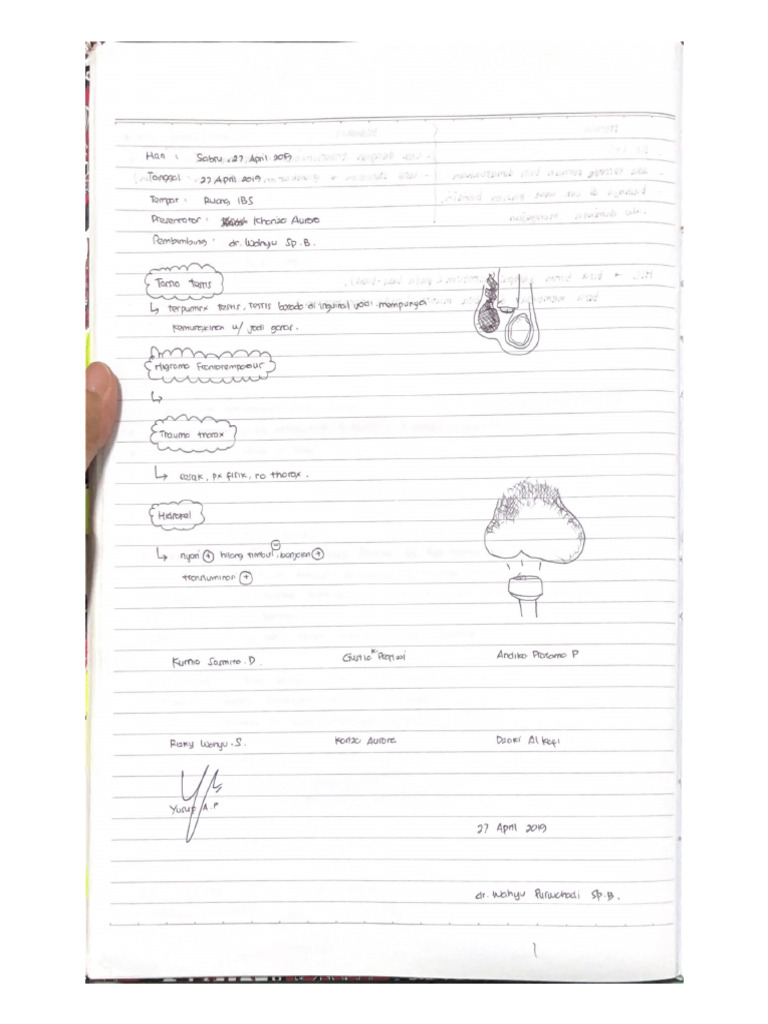 Hari : Sabtu, 27 April 2019
Tanggal : 27 April 2019
Tempat : Ruang IBS
Presentator : Khanza Aurora
Pembimbing : dr. Wahyu Sp.B.
↳ testis, testis berada di inguinal jadi mempunyai
kemungkinan u/ jadi ganas.
Higroma Frontotemporal
↳
Trauma thorax
↳ sesak, px fisik, ro thorax.
Hidrokel
↳ nyeri (+) hilang timbul (-), benjolan (+)
transluminasi (+)
Kurnia Sasmita. D Andika Pratama P
Rizky Wahyu. S.
Yusup A.P
27 April 2019
dr. Wahyu Purwohadi Sp.B.
1